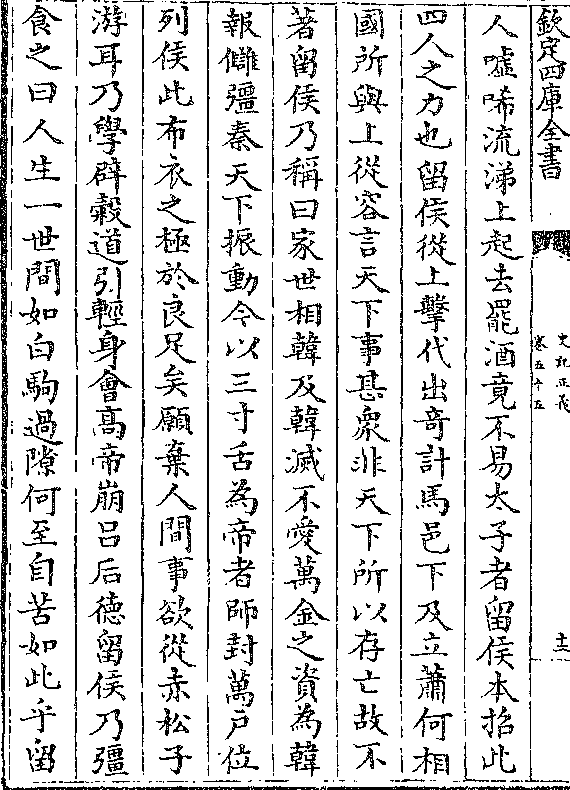 欽定四庫全書
史記正義
卷五十五
十三
人噓唏流涕上起去罷酒竟不易太子者留侯本招此
四人之力也留侯從上擊代出竒計馬邑下及立蕭何相
國所與上從容言天下事甚衆非天下所以存亡故不
著留侯乃稱曰家世相韓及韓滅不愛萬金之資為韓
報讎彊秦天下振動今以三寸舌為帝者師封萬戸位
列侯此布衣之極於良足矣願棄人間事欲從赤松子
游耳乃學辟糓道引輕身會髙帝崩呂后德留侯乃彊
食之曰人生一世間如白駒過隙何至自苦如此乎留